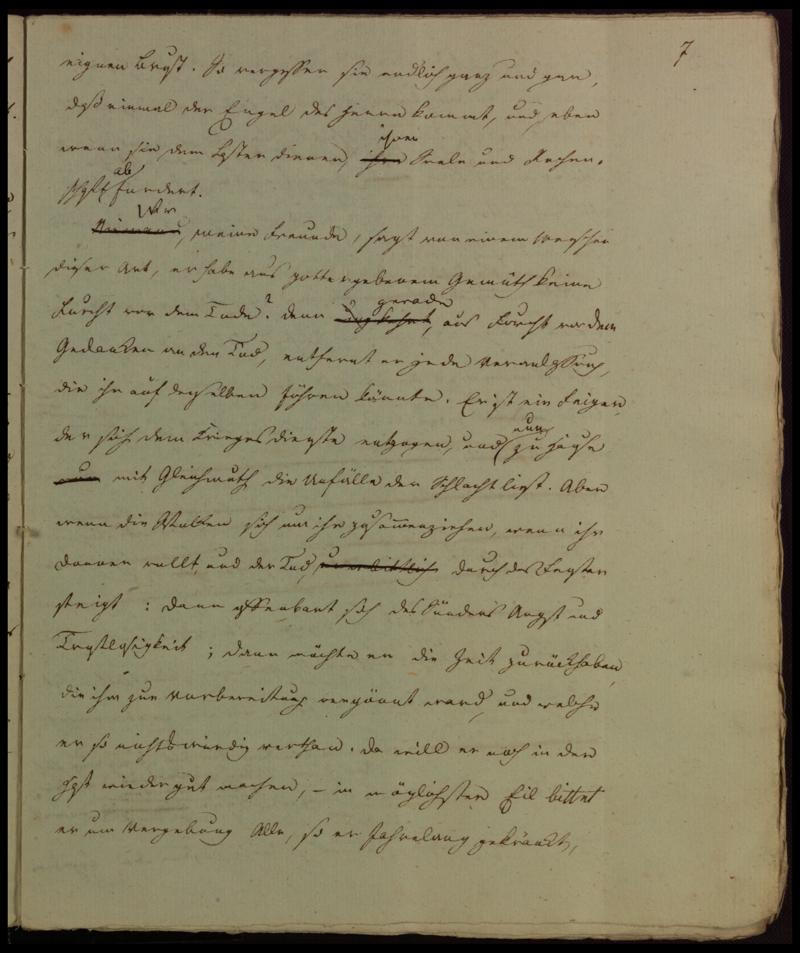 7
eignen Brust. So vergessen sie endlich ganz und gar,
daß einmal der Engel des Herrn kommt, und eben
wenn sie dem Laster dienen, ihre ihnen Seele und Rechen-
schaft abfordert.
Niemand Wer, meine Freunde, sagt von einem Menschen
dieser Art, er habe aus gottergebenem Gemüth keine
Furcht vor dem Tode? denn gerade, aus Furcht vor dem
Gedanken an den Tod, entfernt er jede Veranlassung,
die ihn auf denselben führen könnte. Er ist ein Feiger,
der sich dem Kriegesdienste entzogen, und nun zu Hause
nun mit Gleichmuth die Unfälle der Schlacht liest. Aber
wenn die Wolken sich um ihn zusammenziehen, wenn ihr
Donner rollt, und der Tod unerbittlich durch das Fenster
steigt: dann offenbart sich des Sünders Angst und
Trostlosigkeit; dann möchte er die Zeit zurückhaben,
die ihm zur Vorbereitung vergönnt ward, und welche
er so nichtswürdig verthan. Da will er noch in der
Hast wieder gut machen, – in möglichster Eil bittet
er um Vergebung Alle, so er Jahrelang gekränkt,